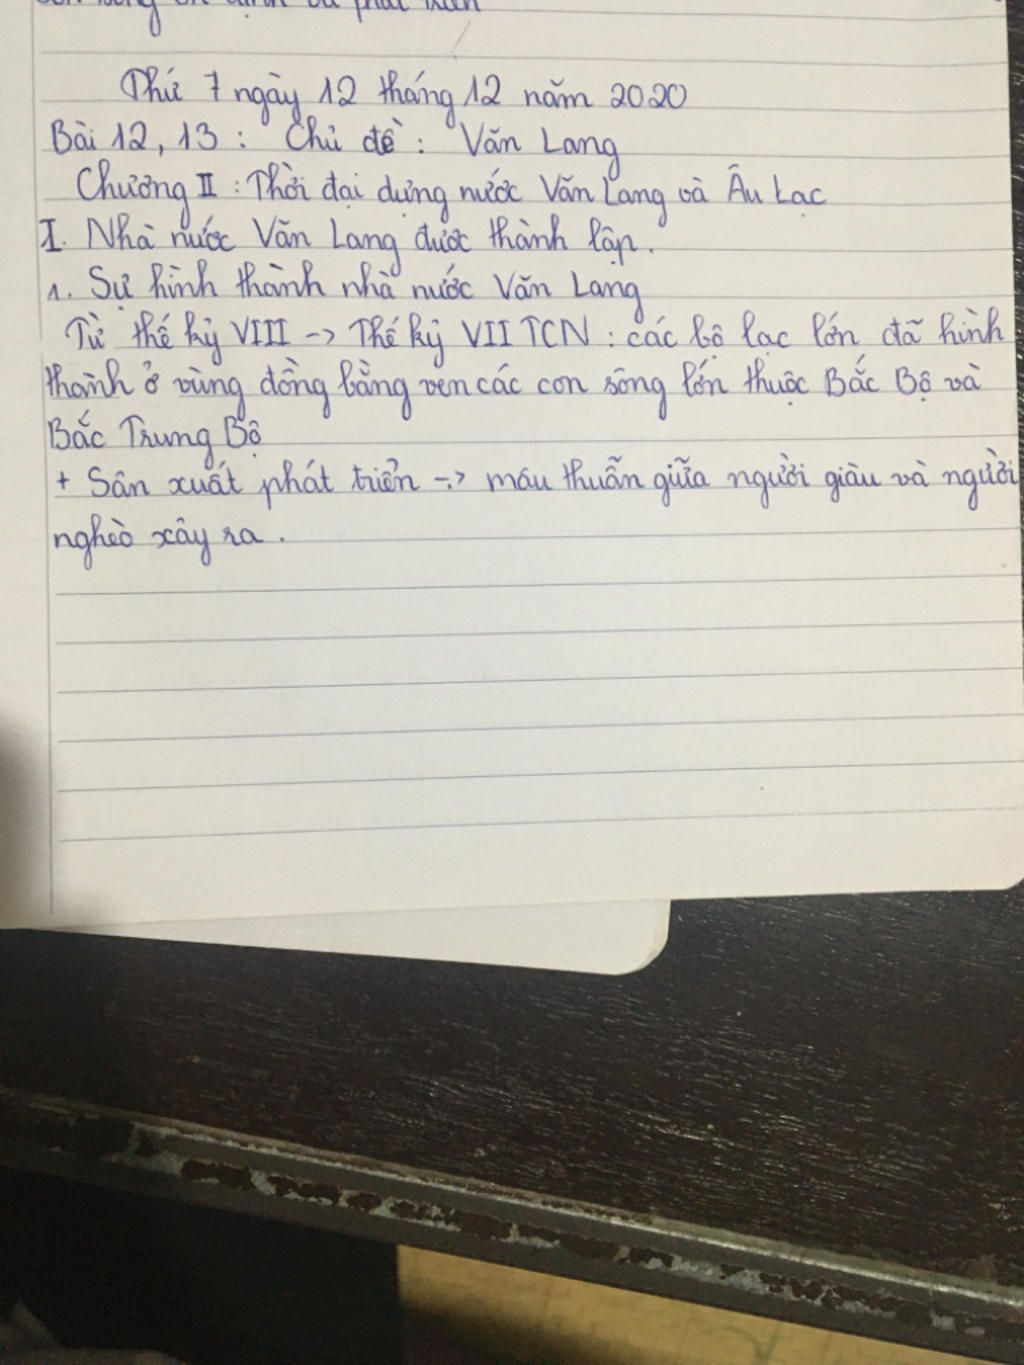 Thứ 7 ngày 12 tháng 12 năm 2020
Bài 12, 13 : Chủ đề : Văn Lang
Chương II : Thời đại dựng nước Văn Lang và Âu Lạc
I. Nhà nước Văn Lang được thành lập.
1. Sự hình thành nhà nước Văn Lang
Từ thế kỷ VIII -> Thế kỷ VII TCN : các bộ lạc lớn đã hình
thành ở vùng đồng bằng ven các con sông lớn thuộc Bắc Bộ và
Bắc Trung Bộ
+ Sản xuất phát triển -> mâu thuẫn giữa người giàu và người
nghèo xảy ra .